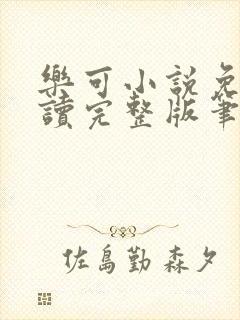 樂可小説免
讀完整版筆
佐島勤 森夕